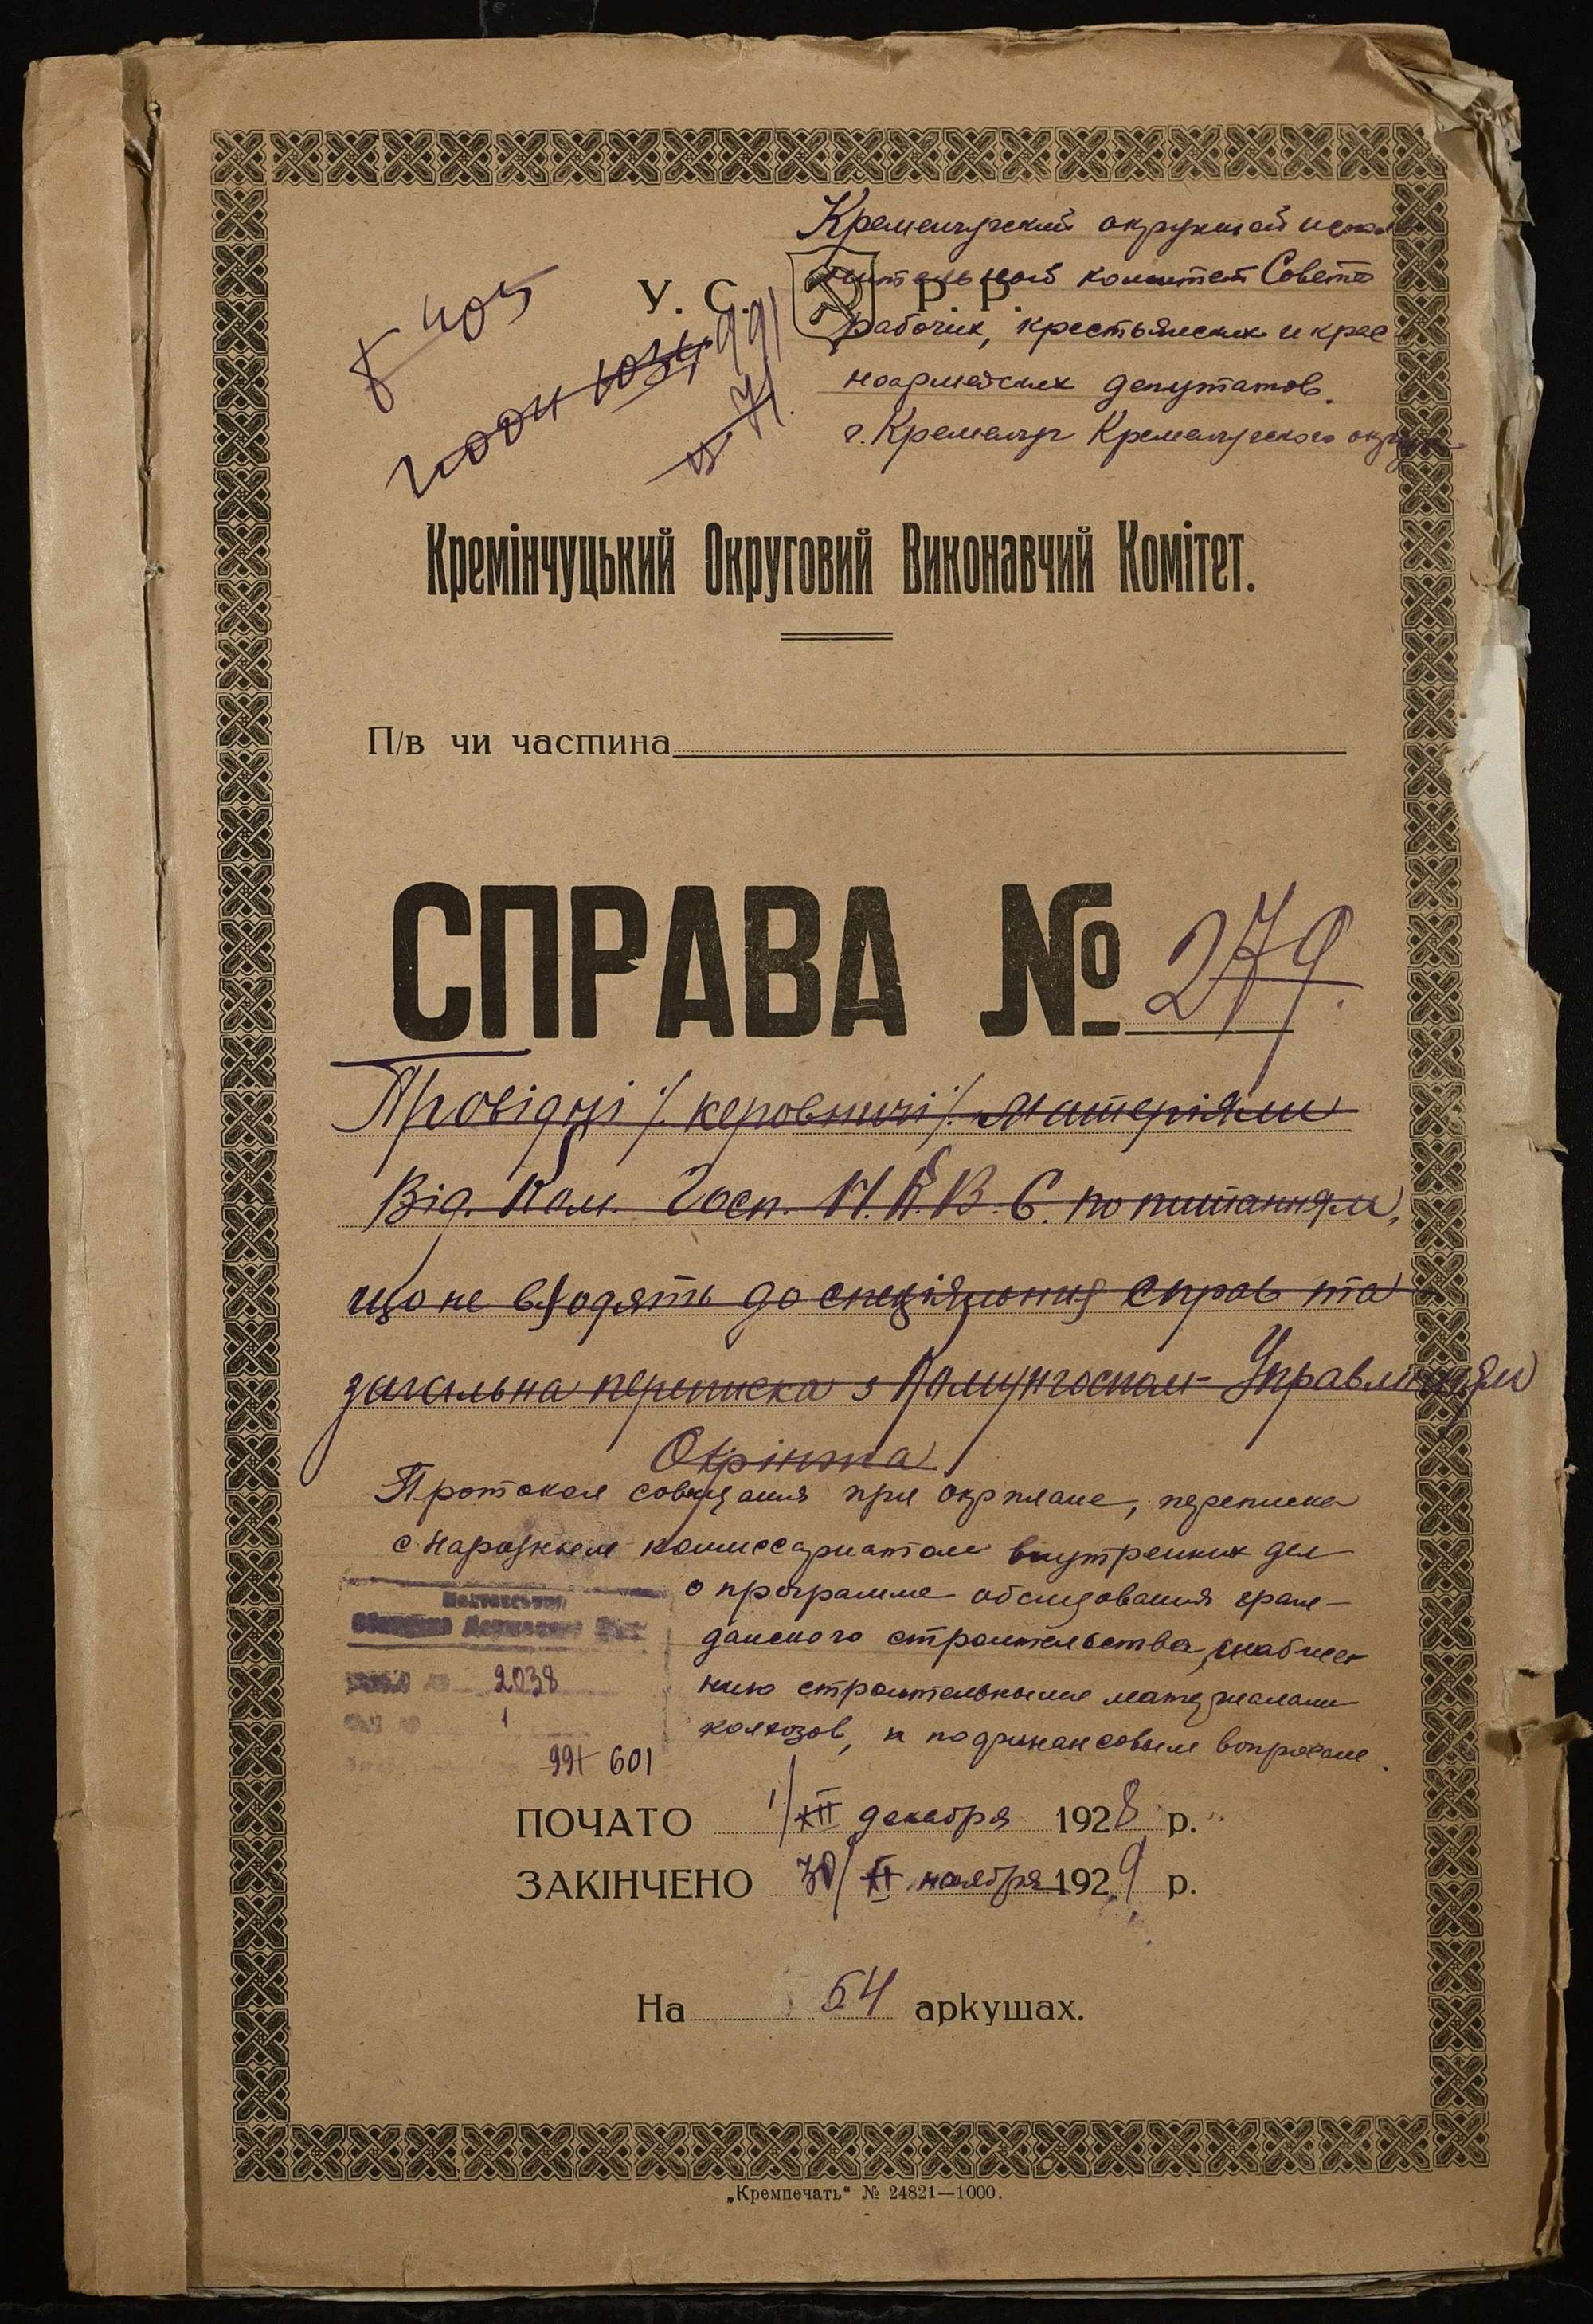 Кременчугский окружной испол
нительный комитет Совета
У. С. Р. Р.
рабочих, крестьянских и крас
ноармейских депутатов.
г. Кременчуг Кременчугского округа
8 405
1034 991
71.
Кремінчуцький Округовий Виконавчий Комітет.
П/в чи частина
СПРАВА № 279.
Провідні /. керовничі /. матеріяли
Від. Ком. Госп. Н.К.В.С. по питанням,
що не входять до спеціяльних справ та
загальна переписка з Комунгоспом - Управлінням
Окрінжа
Протокол совещания при окрплане, переписка
с народным комиссариатом внутренних дел
о программе обследования граж-
данского строительства, снабже
нию строительными материалами
колхозов, и по финансовым вопросам.
2038
1
991 601
ПОЧАТО 1/XII декабря 1928 р.
ЗАКІНЧЕНО 30/XI ноября 1929 р.
На 54 аркушах.
„Кремпечать“ № 24821—1000.